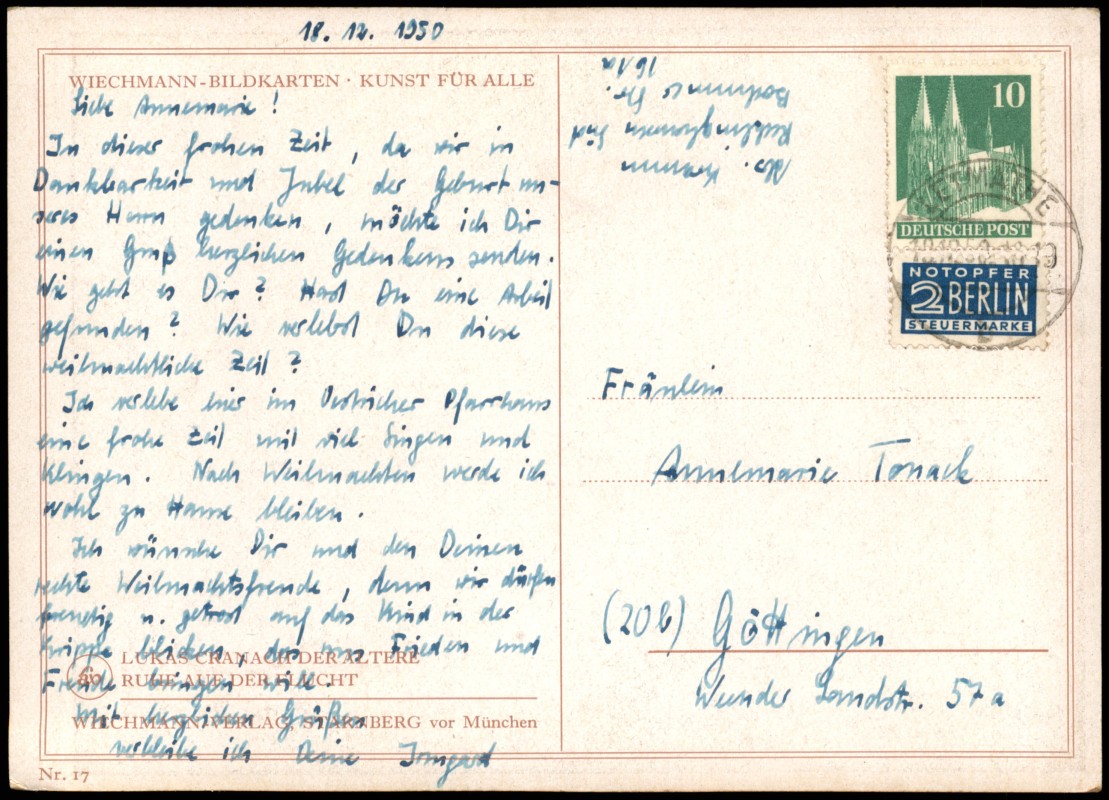 18. 12. 1950
WIECHMANN-BILDKARTEN · KUNST FÜR ALLE
Liebe Annemarie!
In dieser frohen Zeit, da wir in
Dankbarkeit und Jubel der Geburt un-
seres Herrn gedenken, möchte ich Dir
einen Gruß herzlichen Gedenkens senden.
Wie geht es Dir? Hast Du eine Arbeit
gefunden? Wie verlebst Du diese
weihnachtliche Zeit?
Ich verlebe hier im Oestricher Pfarrhaus
eine frohe Zeit mit viel Singen und
Klingen. Nach Weihnachten werde ich
wohl zu Hause bleiben.
Ich wünsche Dir und den Deinen
rechte Weihnachtsfreude, denn wir dürfen
freudig u. getrost auf das Kind in der
Krippe blicken, das uns Frieden und
Freude bringen will.
Mit herzlichen Grüßen
verbleibe ich Deine Irmgard
LUKAS CRANACH DER ÄLTERE
RUHE AUF DER FLUCHT
WIECHMANN-VERLAG, STARNBERG vor München
Nr. 17
Abs.
Bochumer Str.
16 1/a
10
DEUTSCHE POST
NOTOPFER
2 BERLIN
STEUERMARKE
Fräulein
Annemarie Tonack
(20b) Göttingen
Weender Landstr. 57a